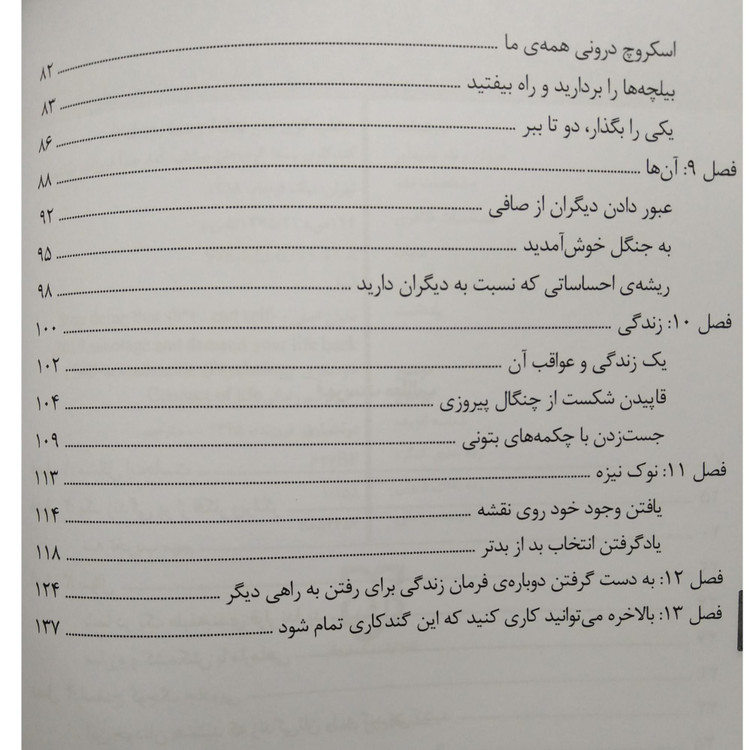 اسکروچ درونی همه‌ی ما ........ ۸۲
بیلچه‌ها را بردارید و راه بیفتید ........ ۸۳
یکی را بگذار، دو تا ببر ........ ۸۶
فصل ۹: آن‌ها ........ ۸۸
عبور دادن دیگران از صافی ........ ۹۲
به جنگل خوش‌آمدید ........ ۹۵
ریشه‌ی احساساتی که نسبت به دیگران دارید ........ ۹۸
فصل ۱۰: زندگی ........ ۱۰۰
یک زندگی و عواقب آن ........ ۱۰۲
قاپیدن شکست از چنگال پیروزی ........ ۱۰۴
جست‌زدن با چکمه‌های بتونی ........ ۱۰۹
فصل ۱۱: نوک نیزه ........ ۱۱۳
یافتن وجود خود روی نقشه ........ ۱۱۴
یادگرفتن انتخاب بد از بدتر ........ ۱۱۸
فصل ۱۲: به دست گرفتن دوباره‌ی فرمان زندگی برای رفتن به راهی دیگر ........ ۱۲۴
فصل ۱۳: بالاخره می‌توانید کاری کنید که این گندکاری تمام شود ........ ۱۳۷